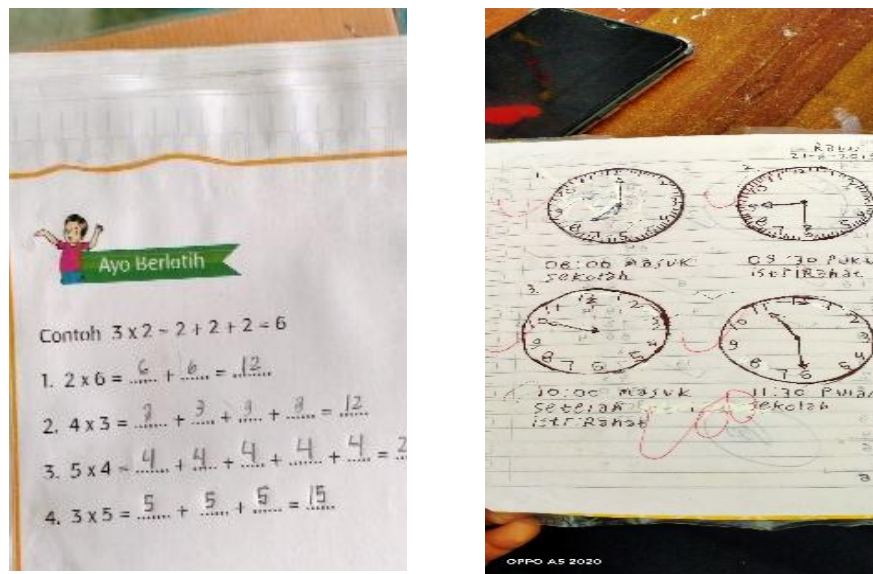 Ayo Berlatih
Contoh 3 x 2 = 2 + 2 + 2 = 6
1. 2 x 6 = 6 + 6 = 12
2. 4 x 3 = 3 + 3 + 3 + 3 = 12
3. 5 x 4 = 4 + 4 + 4 + 4 + 4 = 2
4. 3 x 5 = 5 + 5 + 5 = 15
Rabu
1.
2.
08:00 masuk
sekolah
09:30 PUKU
istiRahat
3.
10:00 masuk
setelah
istiRahat
11:30 Pula
sekolah
OPPO A5 2020